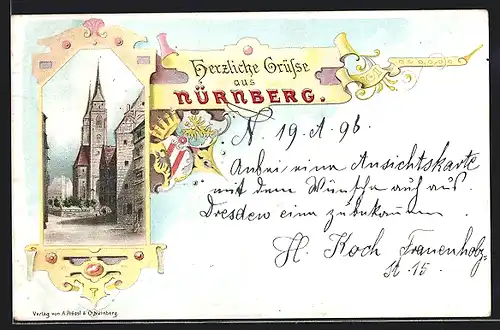 Herzliche Grüsse
aus
NÜRNBERG.
N. 19. A. 96.
Anbei eine Ansichtskarte
mit dem Wunsche auch aus
Dresden eine zu bekommen
H. Koch Frauenholz-
st. 15.
Verlag von A. &